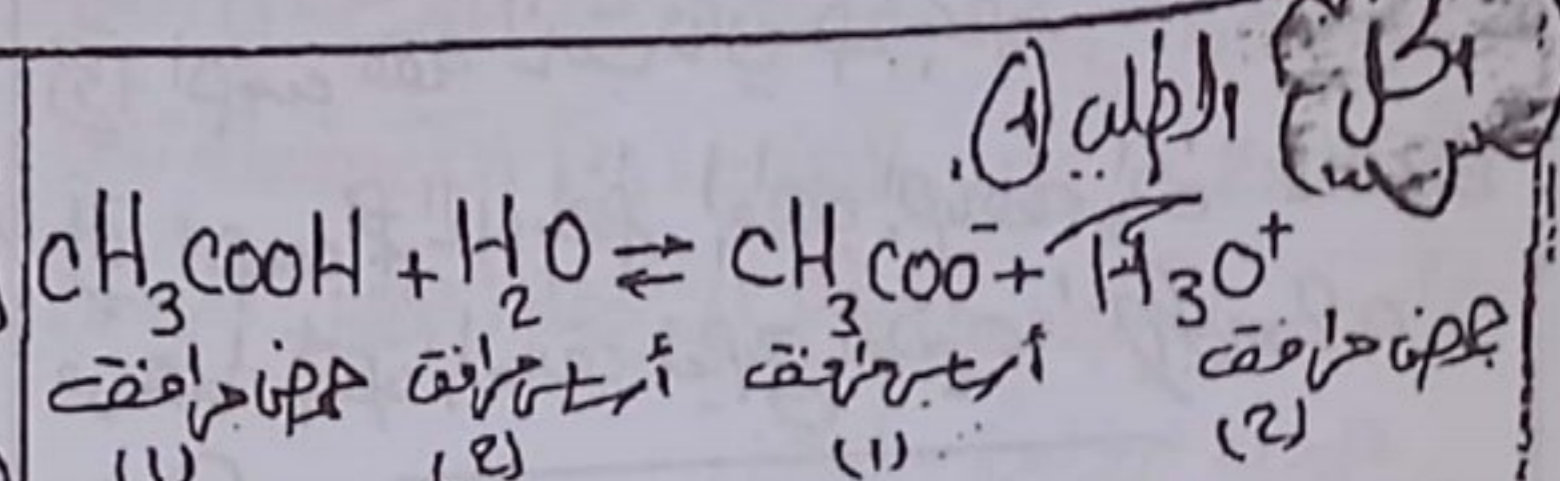 الحل
الطلب (1).
CH₃COOH + H₂O ⇌ CH₃COO⁻ + H₃O⁺
حمض مرافق أساس مرافق أساس مرافق حمض مرافق
(1) (2) (1) (2)